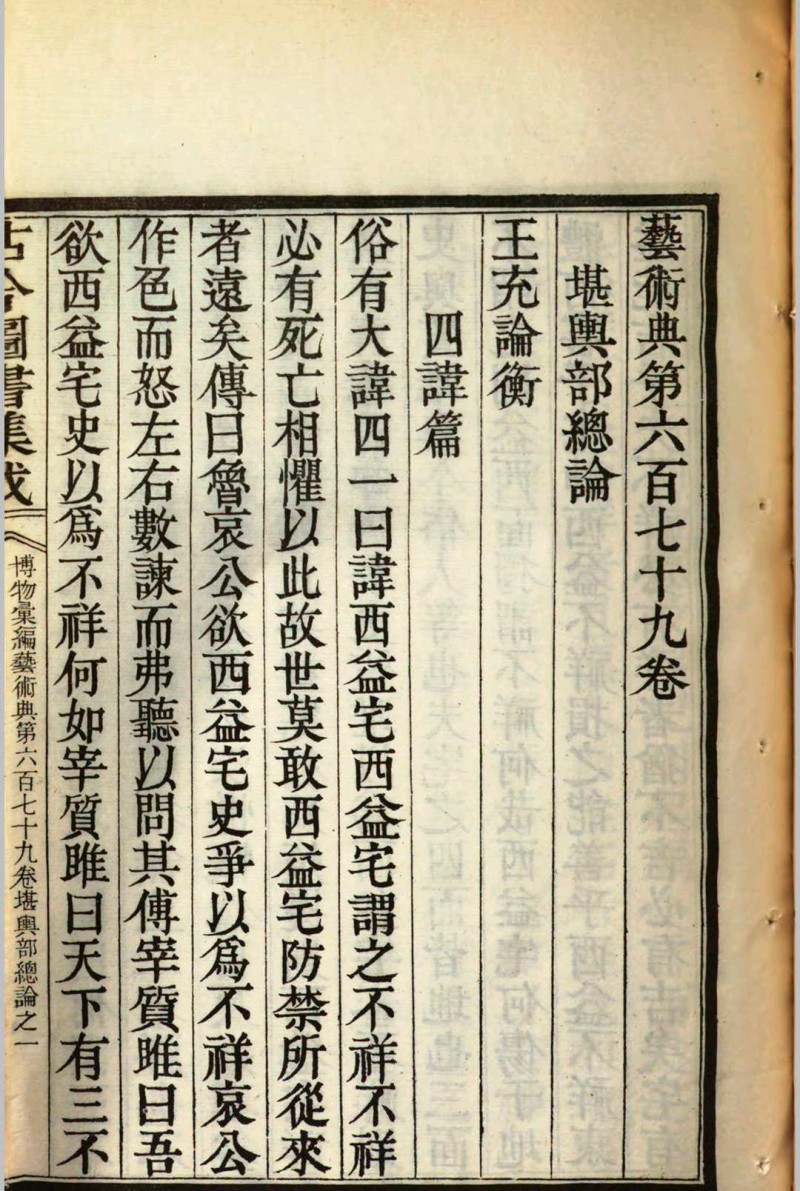 藝術典第六百七十九卷
堪輿部總論
王充論衡
四諱篇
俗有大諱四一曰諱西益宅西益宅謂之不祥不祥
必有死亡相懼以此故世莫敢西益宅防禁所從來
者遠矣傳曰魯哀公欲西益宅史爭以爲不祥哀公
作色而怒左右數諫而弗聽以問其傅宰質睢曰吾
欲西益宅史以爲不祥何如宰質睢曰天下有三不
古今圖書集成 博物彙編藝術典第六百七十九卷堪輿部總論之一